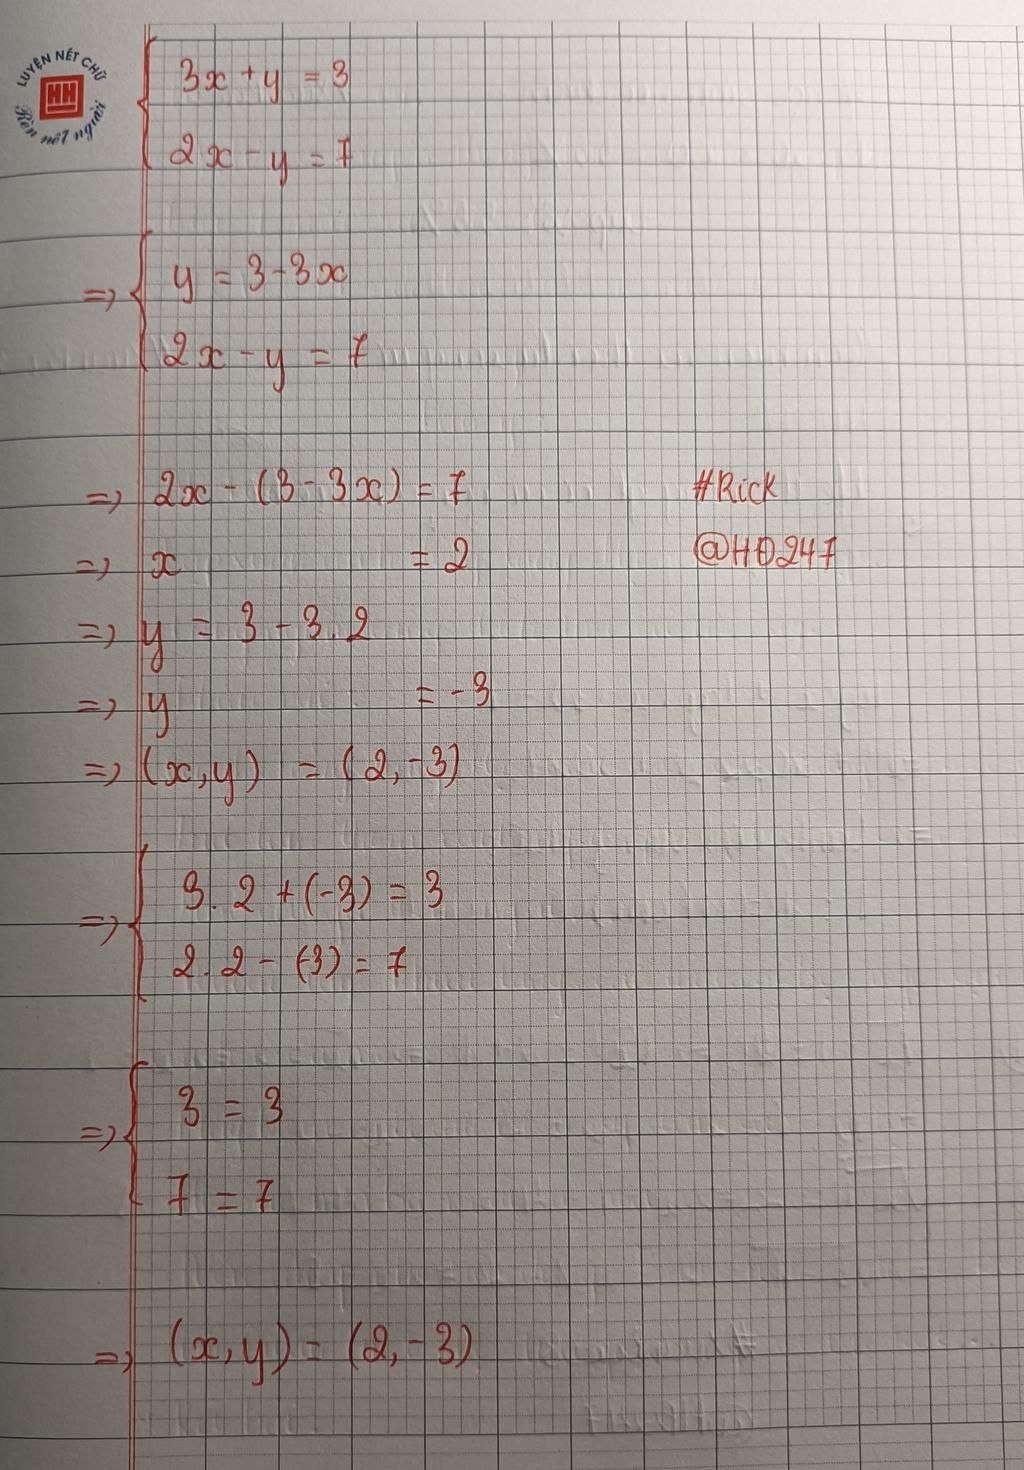 LUYỆN NÉT CHỮ
HH
Rèn nết người
3x + y = 3
2x - y = 7
=> y = 3 - 3x
2x - y = 7
=> 2x - (3 - 3x) = 7
#Rick
=> x = 2
@HĐ247
=> y = 3 - 3.2
=> y = -3
=> (x,y) = (2,-3)
=> 3.2 + (-3) = 3
2.2 - (-3) = 7
=> 3 = 3
7 = 7
=> (x,y) = (2,-3)